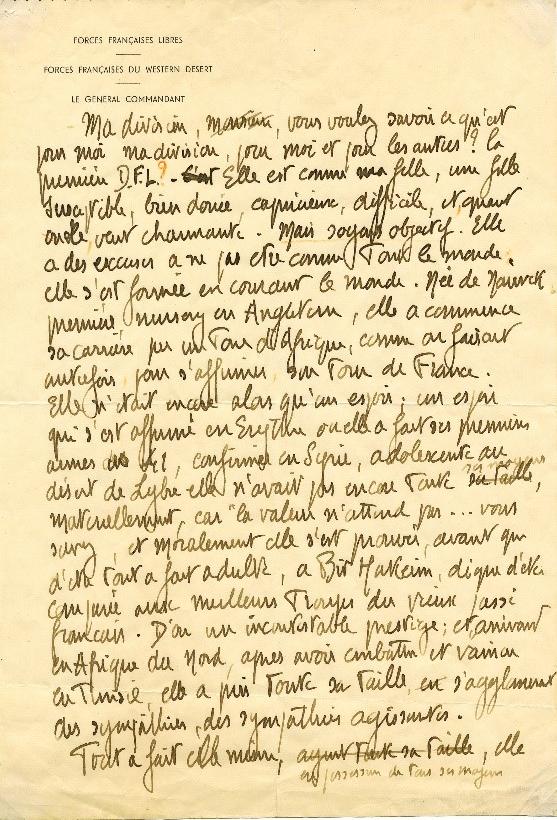 FORCES FRANÇAISES LIBRES
FORCES FRANÇAISES DU WESTERN DESERT
LE GENERAL COMMANDANT
Ma division, monsieur, vous voulez savoir ce qu'est
pour moi ma division, pour moi et pour les autres ? la
première D.F.L ? - C'est Elle est comme ma fille, une fille
susceptible, bien douée, capricieuse, difficile, et quant
on le veut charmante. Mais soyons objectif. Elle
a des excuses a ne pas etre comme Tout le monde.
elle s'est formée en courant le monde. Née de Narwick
première nursery en Angleterre, elle a commencé
sa carrière par un Tour d'Afrique, comme on faisait
autrefois, pour s'affirmer, son Tour de France.
Elle n'était encore alors qu'un espoir ; un espoir
qui s'est affirmé en Erythrée ou elle a fait ses premières
armes, confirmé en Syrie, adolescente au
désert de Lybie elle n'avait pas encore Toute sa taille, ses moyens
maternellement, car "la valeur n'attend pas ... vous
savez, et moralement elle s'est prouvée, avant que
d'etre Tout a fait adulte, a Bir Hakeim, digne d'etre
comparée aux meilleurs Troupes du vieux passé
français. D'ou un incontestable prestige ; et, arrivant
en Afrique du Nord, apres avoir combattu et vaincu
en Tunisie, elle a pris Toute sa Taille, en s'agglomérant
des sympathies, des sympathies agissantes.
Tout a fait elle meme, ayant Toute sa Taille, elle
en possession de Tous ses moyens